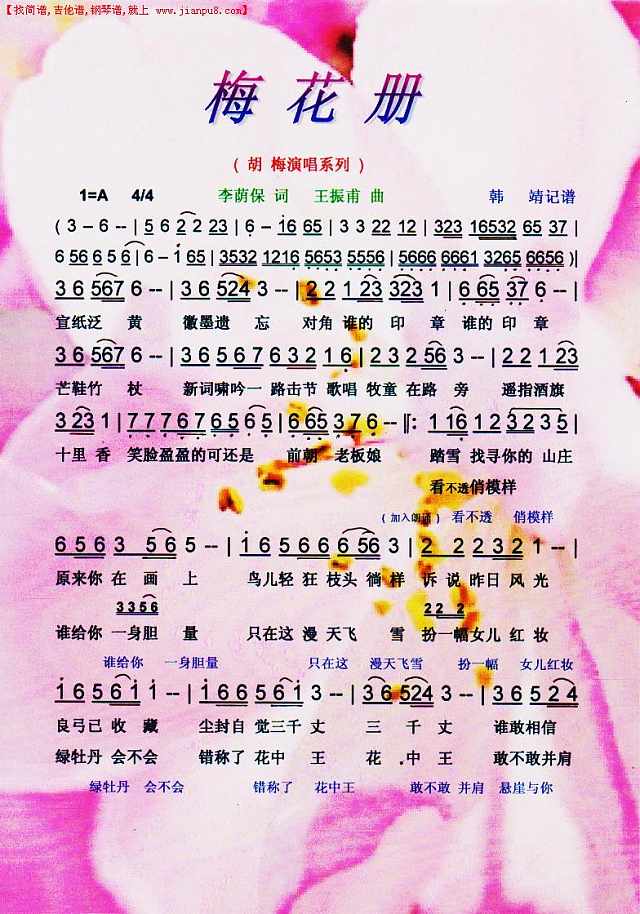 【找简谱,吉他谱,钢琴谱,就上 www.jianpu8.com】
梅花册
( 胡 梅演唱系列 )
1=A 4/4 李荫保 词 王振甫 曲 韩 靖记谱
( 3 – 6 -- | 5 6 2 2 23 | 6 – 16 65 | 3 3 23 2 12 | 323 16532 65 37 |
6 56 6 5 6 | 6 – 1 65 | 3532 1216 5653 5556 | 5666 6661 3265 6656 )|
3 6 567 6 -- | 3 6 524 3 -- | 2 2 1 23 323 1 | 6 65 37 6 -- |
宣纸泛 黄 徽墨遗 忘 对角 谁的 印 章 谁的 印 章
3 6 567 6 -- | 3 6 3 5 6 7 6 3 2 1 6 | 2 3 2 56 3 -- | 2 2 1 23
芒鞋竹 杖 新词啸吟一 路击节 歌唱 牧童 在路 旁 遥指酒旗
3 23 1 | 7 7 7 6 7 6 5 6 5 | 6 65 37 6 -- |: 1 16 1 2 3 2 3 5 |
十里 香 笑脸盈盈的可还是 前朝 老板娘 踏雪 找寻你的 山庄
看不透俏模样
( 加入朗诵 ) 看不透 俏模样
6 5 6 3 5 6 5 -- | 1 6 5 6 6 6 56 3 | 2 2 2 3 2 1 -- |
原来你 在 画 上 鸟儿轻 狂 枝头 徜 样 诉 说 昨日 风 光
3356 22 2
谁给你 一身胆 量 只在这 漫 天飞 雪 扮一幅女儿 红 妆
谁给你 一身胆量 只在这 漫天飞雪 扮一幅 女儿红妆
1 6 5 6 1 1 -- | 1 6 6 5 5 6 1 3 -- | 3 6 524 3 -- | 3 6 5 2 4
良弓已 收 藏 尘封自 觉三千 丈 三 千 丈 谁敢相信
绿牡丹 会不会 错称了 花中 王 花 . 中 王 敢不敢 并肩
绿牡丹 会不会 错称了 花中王 敢不敢 并肩 悬崖与你